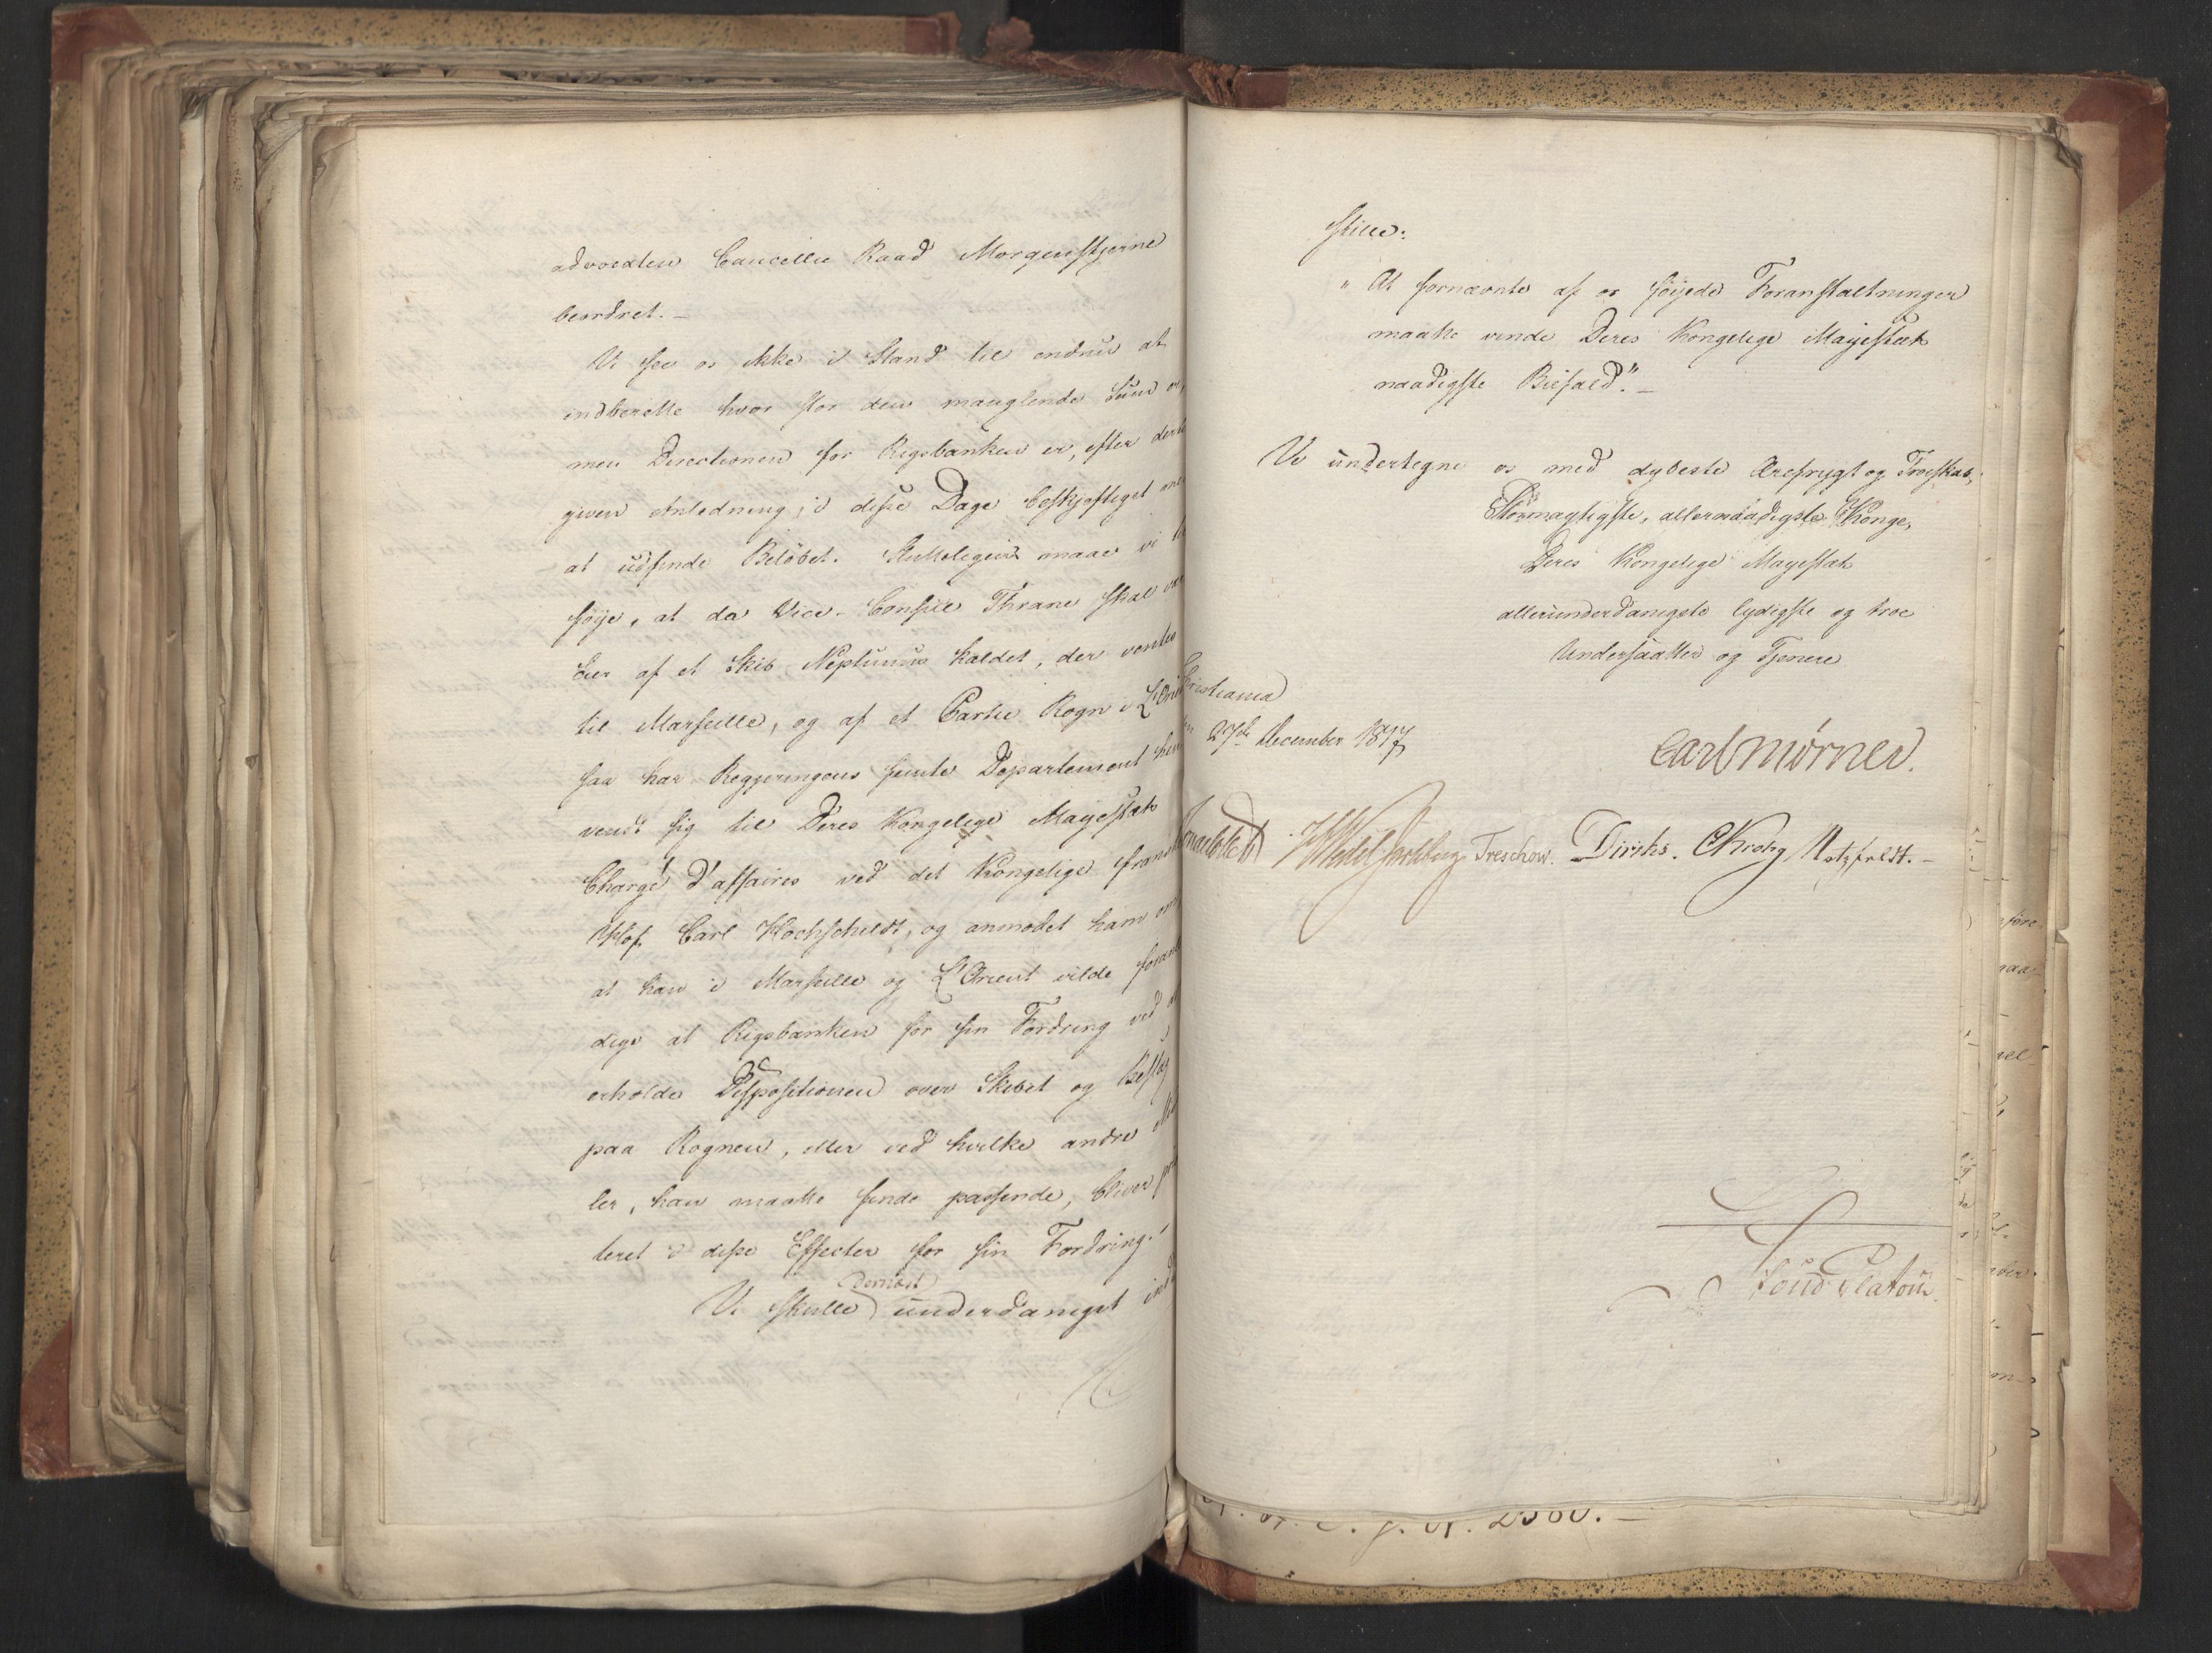 advocaten Cancellie Raad Morgenstjerne
beordret. –
Vi see os ikke i Stand til endnu at
indberette hvor stor den manglende Sum er,
men Directionen for Rigsbanken er, efter dertil
given Anledning, i disse Dage beskjeftiget med
at udfinde Beløbet. Slutteligen maae vi til-
føye, at da Vice-Consul Thrane skal være
Eier af et Skib Neptunus kaldet, der ventes
til Marseille, og af et Partie Rogn i L'Orient
saa har Regjeringens femte Departement hen-
vendt sig til Deres Kongelige Mayestæts
Chargé d'affaires ved det Kongelige franske
Hof Carl Hochschildt, og anmodet ham om
at han i Marseille og L'Orient vilde foran-
dige at Rigsbanken for sin Fordring ved at
erholde Dispositionen over Skibet og Beslag
paa Rognen, eller ved hvilke andre Mid-
ler, han maatte finde passende, bliver
teret i disse Effecter for sin Fordring.
dernæst
Vi skulle underdanigst ind-
stille:
" At fornævnte af os føyede Foranstaltninger
maatte vinde Deres Kongelige Mayestæts
naadigste Bifald." –
Vi undertegne os med dybeste Ærefrygt og Troeskab,
Stormægtigste, allernaadigste Konge,
Deres Kongelige Mayestæts
allerunderdanigste lydigste og troe
Undersaatter og Tjenere
Christiania
den 27de December 1817
Carl Mörner.
HWedel Jarlsberg Treschow. Diriks. CKrohg Motzfeldt. –
Soud Platou
2500. –